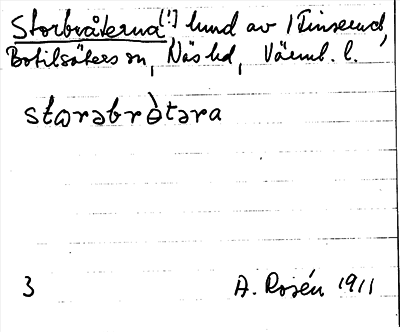 Storbråterna [!] hmd av 1 Finserud,
Botilsäters sn, Näs hd, Värml. l.
storəbrὰtəra
3 A. Rosén 1911